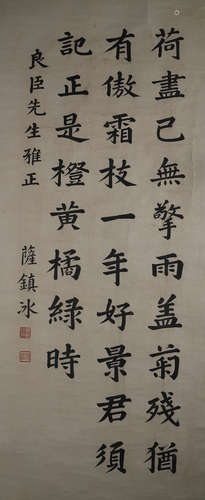 荷盡己無擎雨盖菊殘猶
有傲霜技一年好景君須
記正是橙黄橘緑時
良臣先生雅正
薩鎮冰